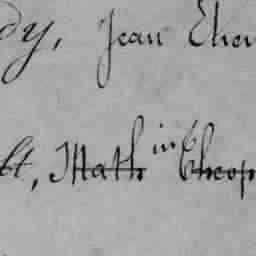 dy, Jean Ehen
lt, Math in Cheop